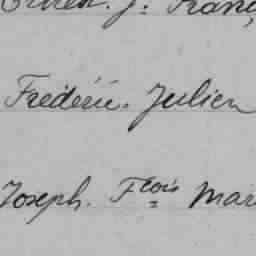 Ernest. J. Franç
Frédéric. Julien
Joseph. Fçois Mar